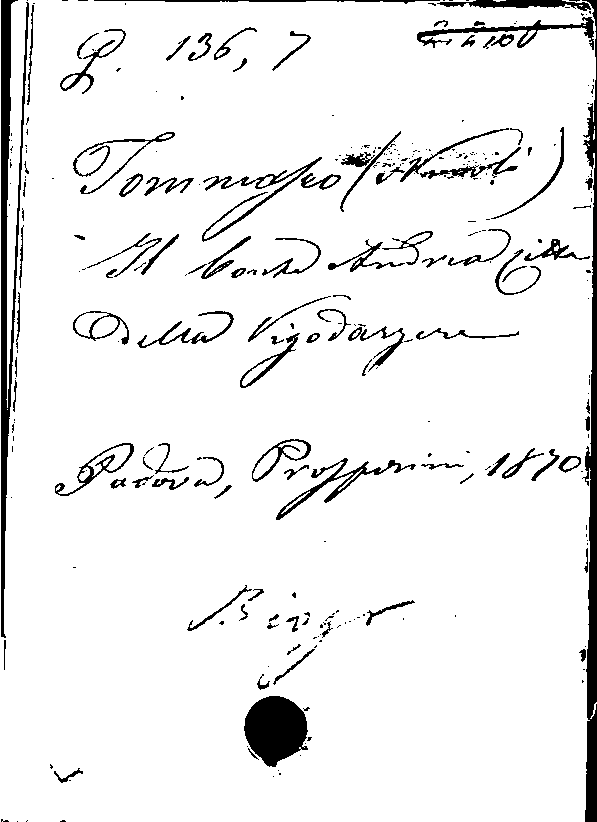 P. 136, 7
Tommaseo (Niccolò)
Il Conte Andrea Citta
Della Vigodarzere
Padova, Prosperini, 1870
Biogr